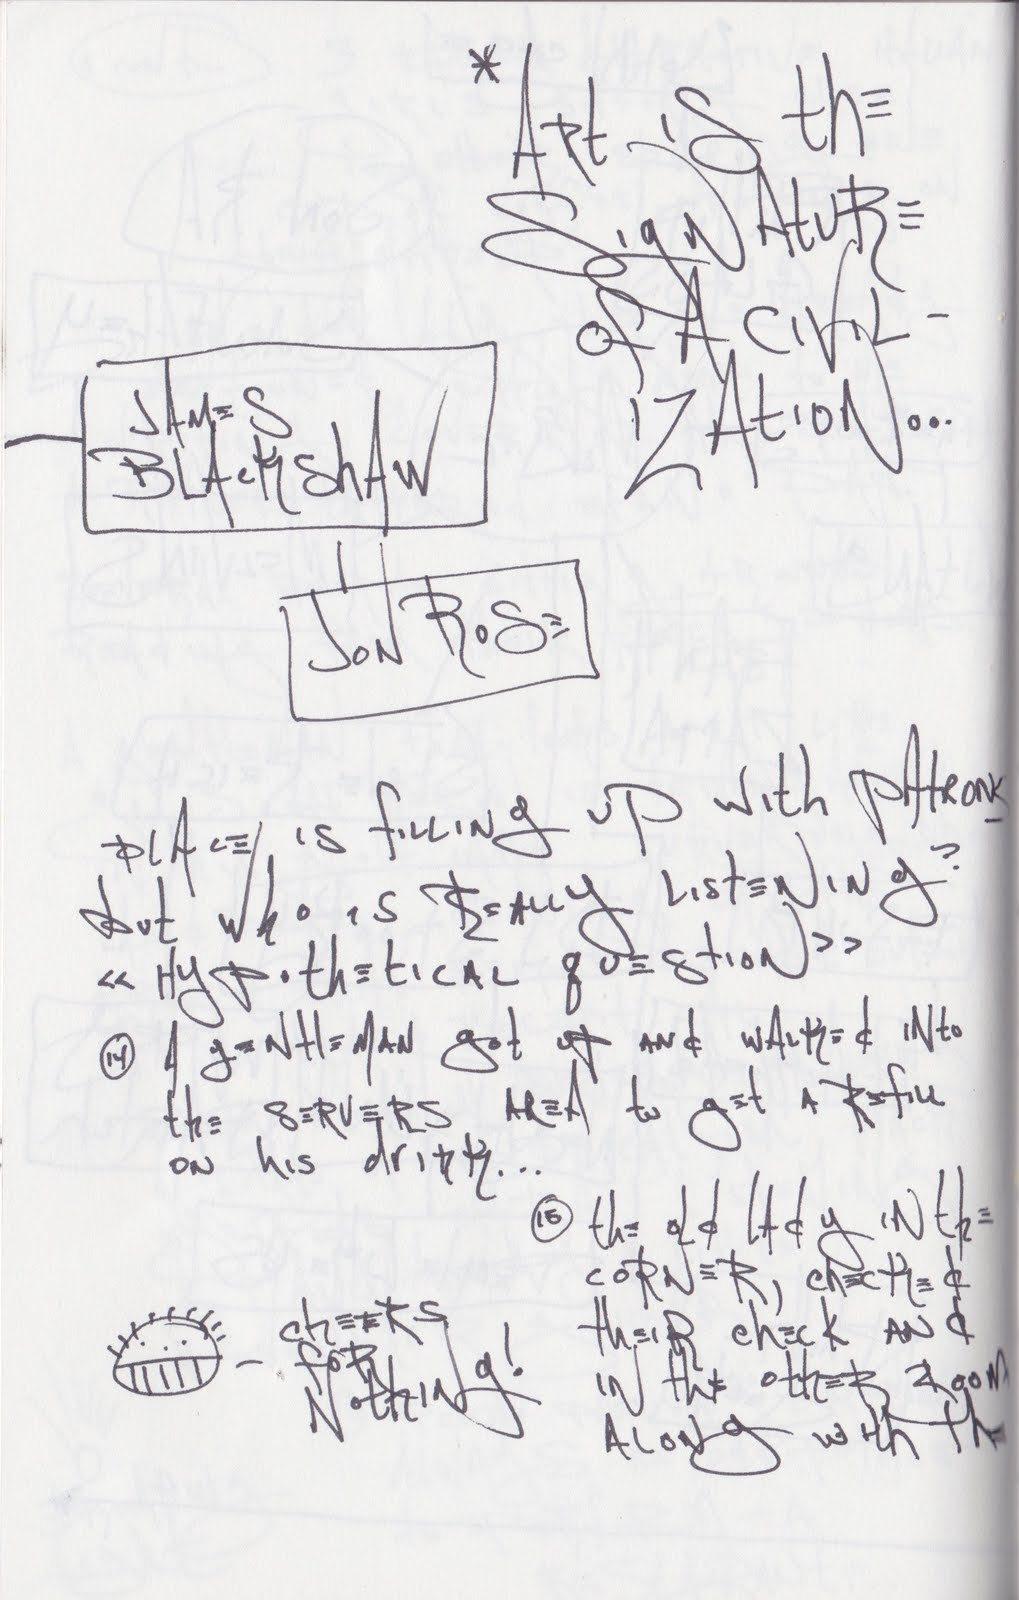 * ART iS thE
SigNAtURE
of A CiVIL-
iZAtioN...
JAMES
BLACKShAW
JoN RoSE
PLACE is filliNg UP with PAtRoNs
but who is REALLY LiStENiNg?
<< HYPothEtiCAL quEstioN >>
14 A gENtlEMAN got up AND WALKED iNto
thE SERVERS AREA to gEt A REfill
oN his driNk...
15 thE old lAdy iN thE
coRNER, chEckEd
thEiR chEck AND
iN thE othER Room
AloNg with thE
- chEERS
foR
NothiNg!